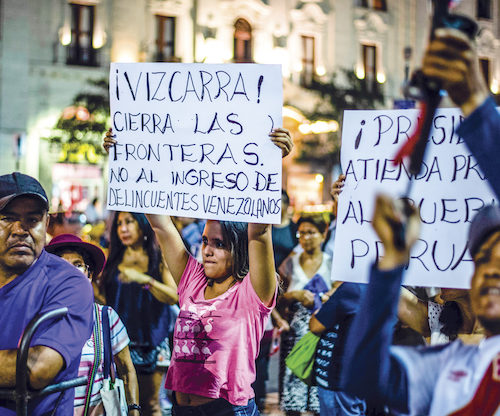 ¡VIZCARRA!
CIERRA LAS
FRONTERAS.
NO AL INGRESO DE
DELINCUENTES VENEZOLANOS
¡PRESI
ATIENDA PR
AL PUEB
PERUA